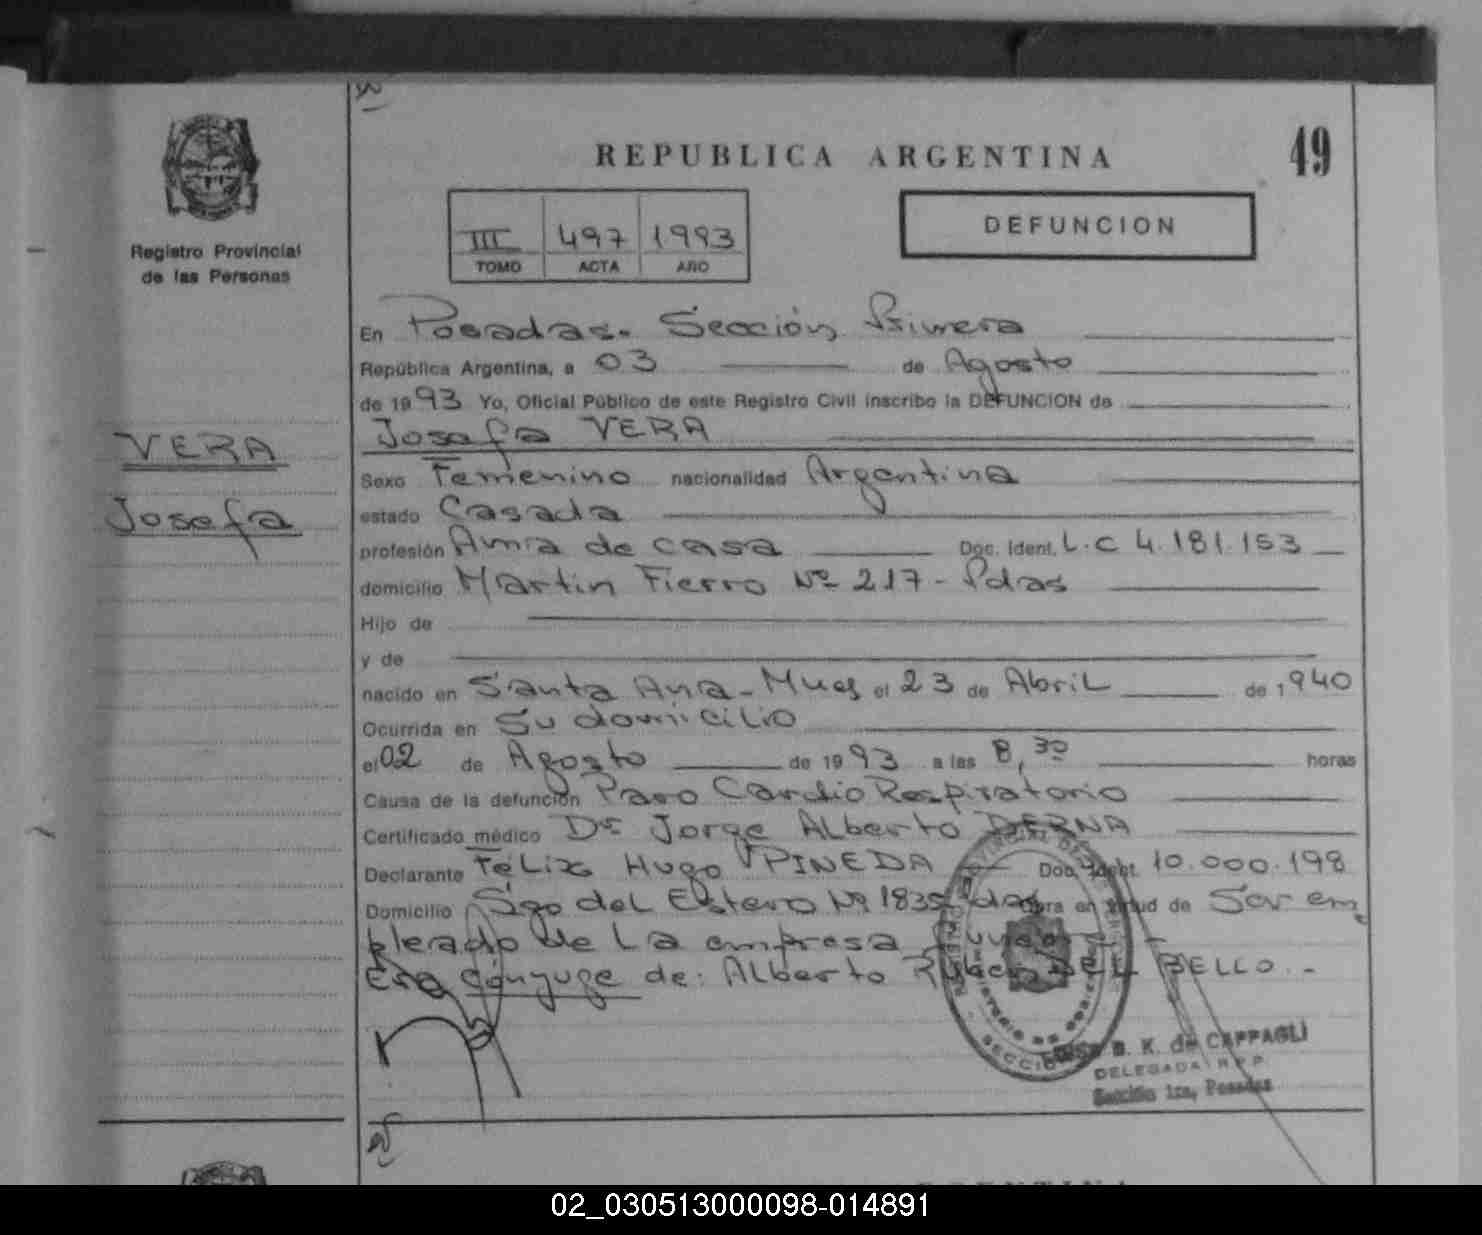 REPUBLICA ARGENTINA
49
Registro Provincial
de las Personas
III 497 1993
TOMO ACTA AÑO
DEFUNCION
En Posadas. Sección Primera
República Argentina, a 03 de Agosto
de 1993 Yo, Oficial Público de este Registro Civil inscribo la DEFUNCION de
VERA
Josefa
Josefa VERA
Sexo Femenino nacionalidad Argentina
estado Casada
profesión Ama de casa Doc. Ident. L.C 4.181.153
domicilio Martin Fierro Nº 217 - Pdas
Hijo de
y de
nacido en Santa Ana - Mnes el 23 de Abril de 1940
Ocurrida en Su domicilio
el 02 de Agosto de 1993 a las 8,30 horas
Causa de la defunción Paro Cardio Respiratorio
Certificado médico Dr Jorge Alberto DERNA
Declarante Félix Hugo PINEDA Doc. Ident. 10.000.198
Domicilio Sgo del Estero Nº 1835 Pdas Obra en virtud de Ser em
pleado de La empresa
Era cónyuge de: Alberto Ruben DEL BELLO.-
B. K. de CAPPAGLI
DELEGADA R.P.P.
Sección 1ra, Posadas
02_030513000098-014891